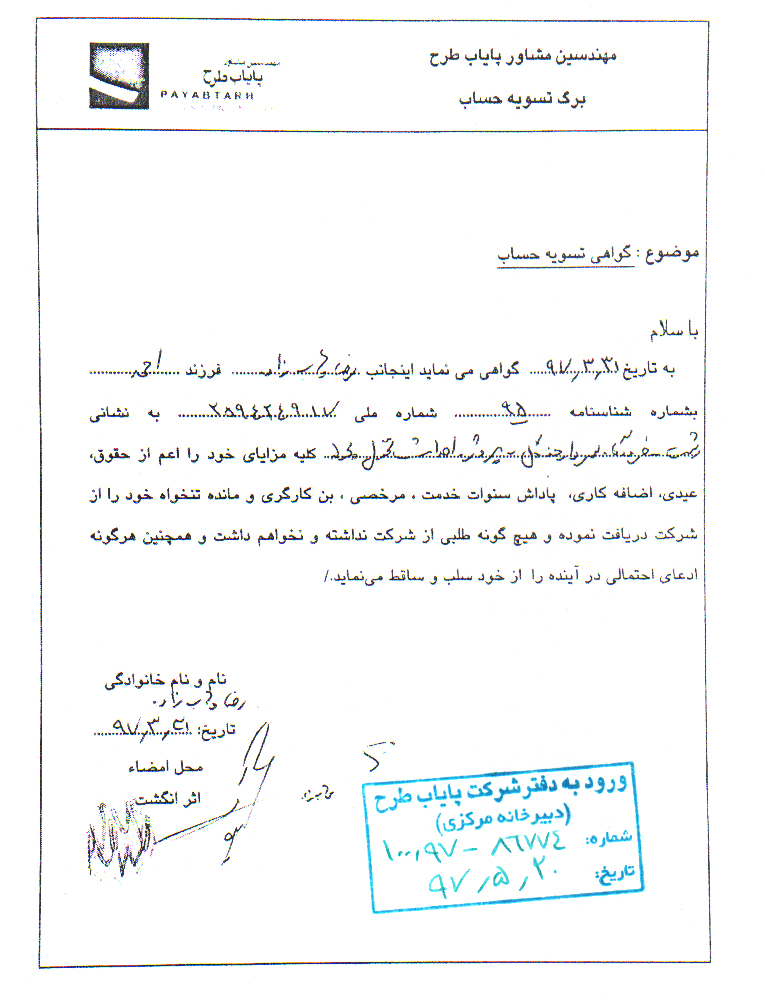 مهندسین مشاور پایاب طرح
برگ تسویه حساب
مهندسین مشاور
پایاب طرح
PAYABTARH
موضوع : گواهی تسویه حساب
با سلام
به تاریخ ۹۷٫۳٫۳۱ گواهی می نماید اینجانب رضا وهاب زاده فرزند
بشماره شناسنامه ۹۵ شماره ملی ۲۵۹۴۲۴۹۰۱۷ به نشانی
کلیه مزایای خود را اعم از حقوق،
عیدی، اضافه کاری، پاداش سنوات خدمت ، مرخصی ، بن کارگری و مانده تنخواه خود را از
شرکت دریافت نموده و هیچ گونه طلبی از شرکت نداشته و نخواهم داشت و همچنین هرگونه
ادعای احتمالی در آینده را از خود سلب و ساقط می‌نماید./
نام و نام خانوادگی
رضا وهاب زاده
تاریخ: ۹۷٫۳٫۳۱
محل امضاء
اثر انگشت
ورود به دفتر شرکت پایاب طرح
(دبیرخانه مرکزی)
شماره: ۱۰۰٫۹۷ – ۸۶۷۷۴
تاریخ: ۹۷٫۵٫۲۰